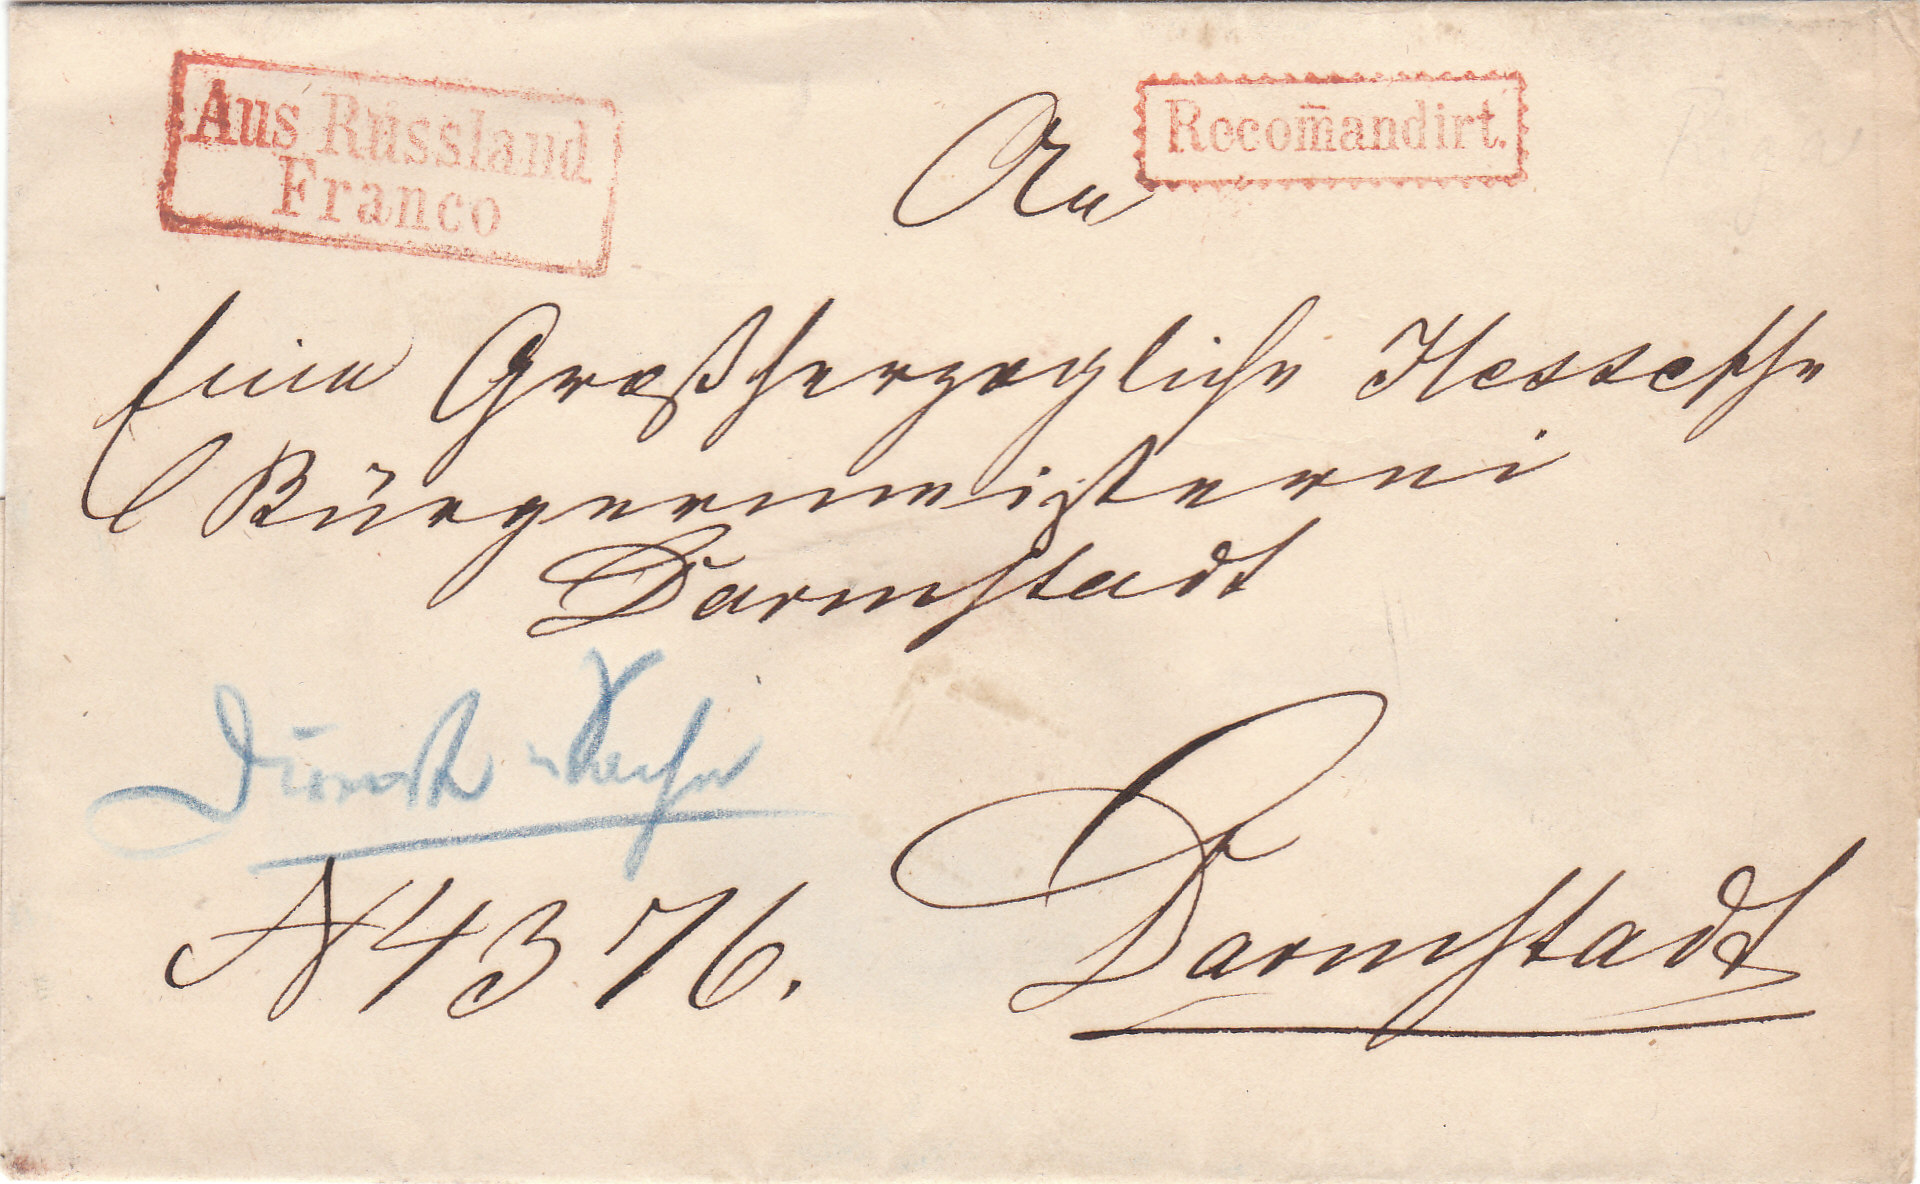 Aus Russland
Franco
Recom̅andirt.
An
Eine Großherzogliche Hessesche
Bürgermeisterei
Darmstadt
Dienst Sache
N 4376.
Darmstadt